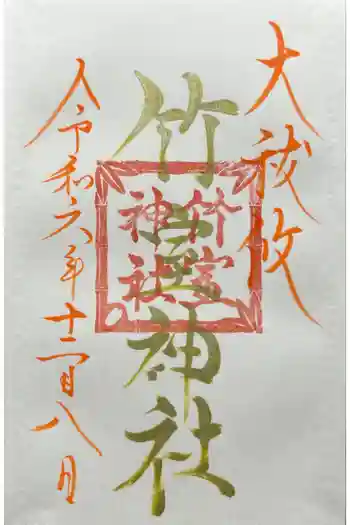 大祓
竹神社
竹
神社
令和六年十二月八日